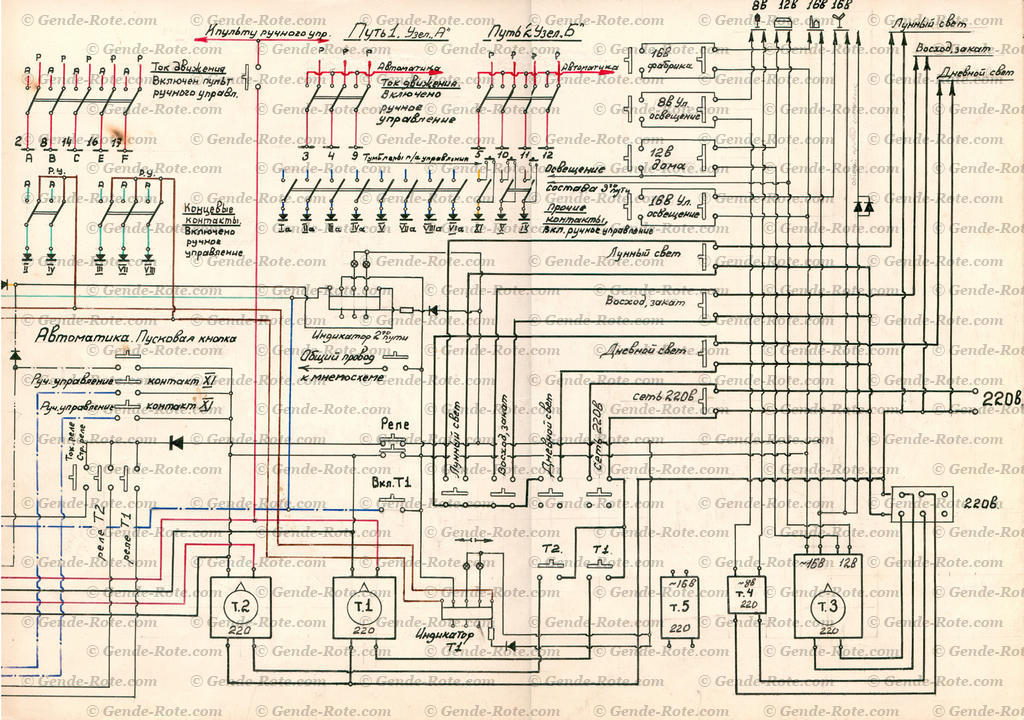 © Gende-Rote.com
8В 12В 16В 16В
К пульту ручного упр.
Путь 1. Узел „А"
Путь 2 Узел „Б"
Лунный свет
Восход, закат
Дневной свет
Ток движения
Включен пульт
ручного управл.
Автоматика
Ток движения.
Включено
ручное
управление
Автоматика
16В
фабрика
8В Ул.
освещение
12В
дома
16В Ул.
освещение
2 8 14 16 17
А В С Е F
3 4 9
5 10 11 12
Тумблеры п/а управления
Освещение
состава 3го пути
Прочие
контакты,
Вкл. ручное управление
Р.У. Р.У.
Концевые
контакты.
Включено
ручное
управление
I IV III VII VIII
Iа IIа IIIа IVа Vа VIа VIIа VIIIа IVа XI X IX
Лунный свет
Восход, закат
Дневной свет
сеть 220В
220В.
Автоматика. Пусковая кнопка
Индикатор 2го пути
Общий провод
к мнемосхеме
Руч. управление контакт XI
Руч. управление контакт XI
Реле
Вкл. Т1
Лунный свет
Восход, закат
Дневной свет
сеть 220В
Ток. реле
Стр. реле
реле Т2
реле Т1
220В.
Т2. Т1.
Т.2
220
Т.1
220
Индикатор
Т1
~16В
Т.5
220
~8В
Т.4
220
~16В 12В
Т.3
220